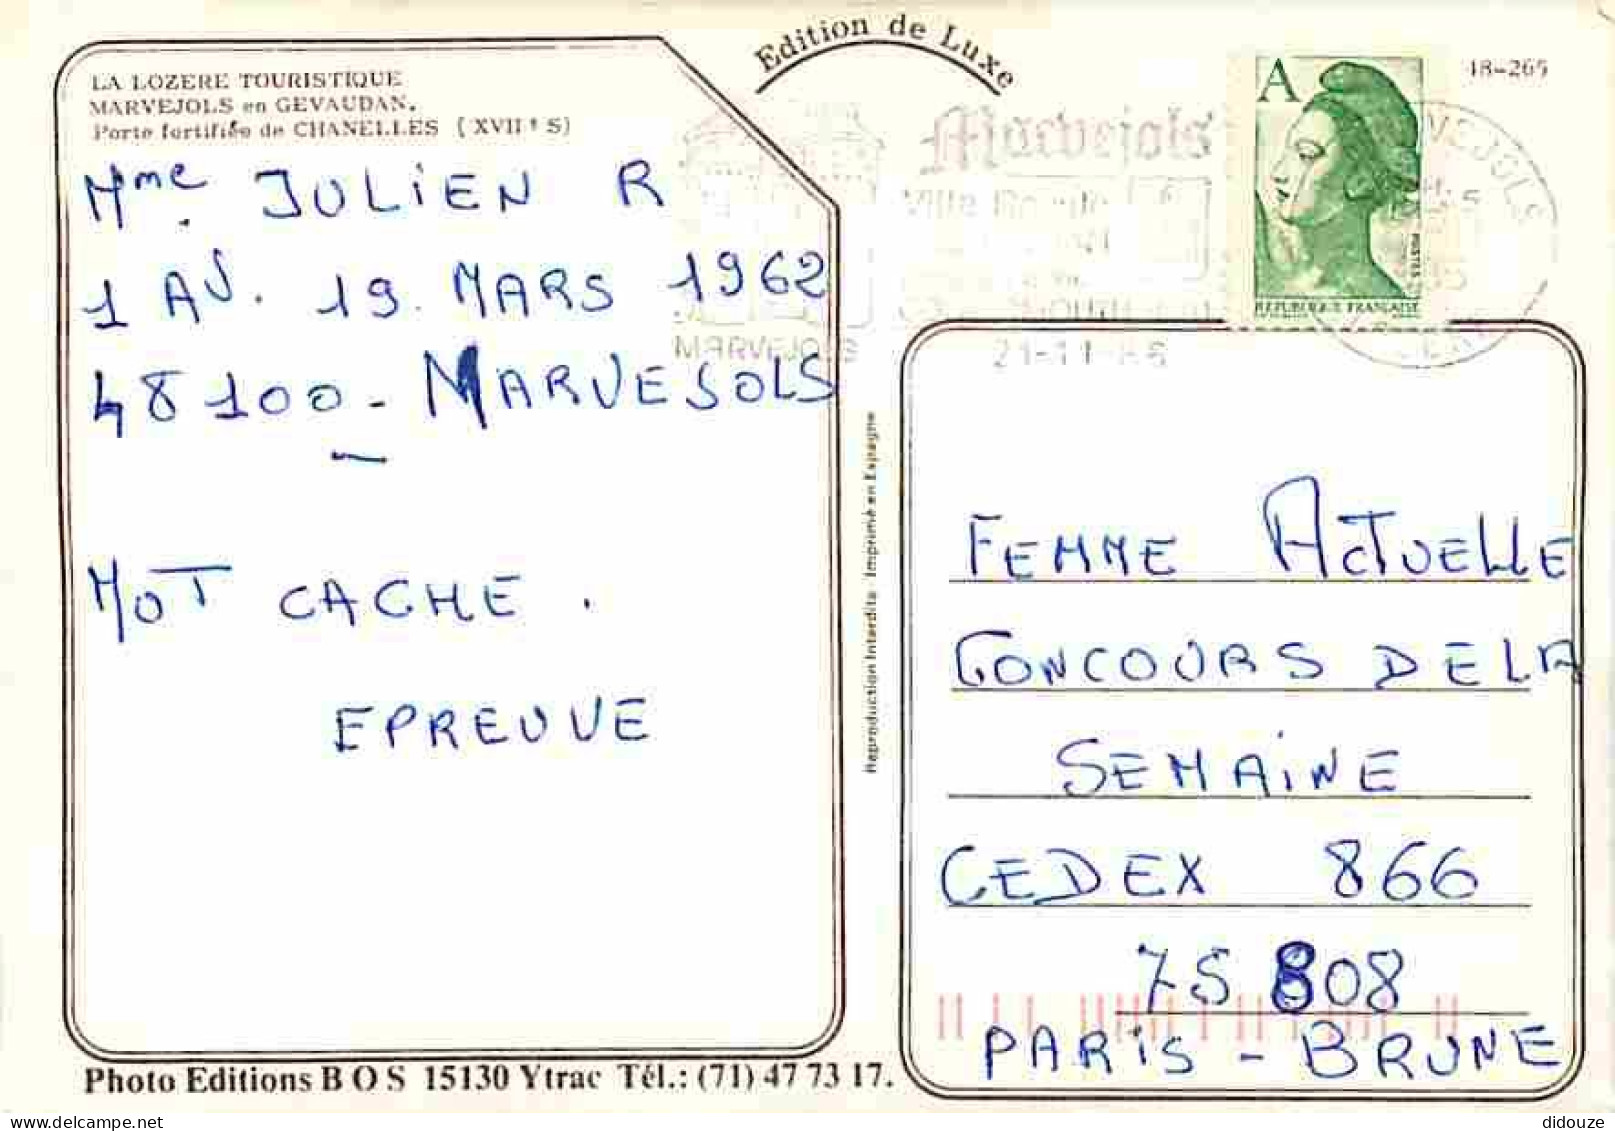 Edition de Luxe
LA LOZERE TOURISTIQUE
MARVEJOLS en GEVAUDAN.
Porte fortifiée de CHANELLES (XVIIe S)
48-265
A
POSTES
REPUBLIQUE FRANÇAISE
Marvejols
MARVEJOLS
21-11
Mme JULIEN R
1 AV. 19 MARS 1962
48100 - MARVEJOLS
MOT CACHE.
EPREUVE
Reproduction Interdite - Imprimé en Espagne
FEMME ACTUELLE
CONCOURS DE LA
SEMAINE
CEDEX 866
75808
PARIS - BRUNE
Photo Editions BOS 15130 Ytrac Tél.: (71) 47 73 17.
didouze